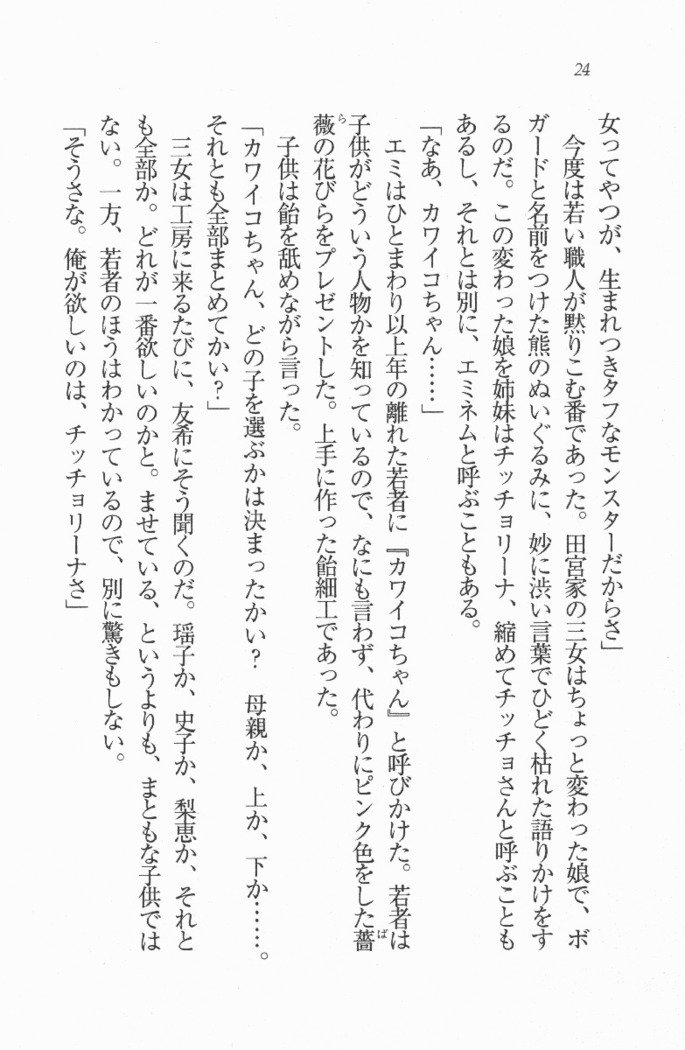 24
女ってやつが、生まれつきタフなモンスターだからさ」
今度は若い職人が黙りこむ番であった。田宮家の三女はちょっと変わった娘で、ボ
ガードと名前をつけた熊のぬいぐるみに、妙に渋い言葉でひどく枯れた語りかけをす
るのだ。この変わった娘を姉妹はチッチョリーナ、縮めてチッチョさんと呼ぶことも
あるし、それとは別に、エミネムと呼ぶこともある。
「なあ、カワイコちゃん……」
エミはひとまわり以上年の離れた若者に『カワイコちゃん』と呼びかけた。若者は
子供がどういう人物かを知っているので、なにも言わず、代わりにピンク色をした薔
薇の花びらをプレゼントした。上手に作った飴細工であった。
子供は飴を舐めながら言った。
「カワイコちゃん、どの子を選ぶかは決まったかい？　母親か、上か、下か……。
それとも全部まとめてかい？」
三女は工房に来るたびに、友希にそう聞くのだ。瑶子か、史子か、梨恵か、それと
も全部か。どれが一番欲しいのかと。ませている、というよりも、まともな子供では
ない。一方、若者のほうはわかっているので、別に驚きもしない。
「そうさな。俺が欲しいのは、チッチョリーナさ」